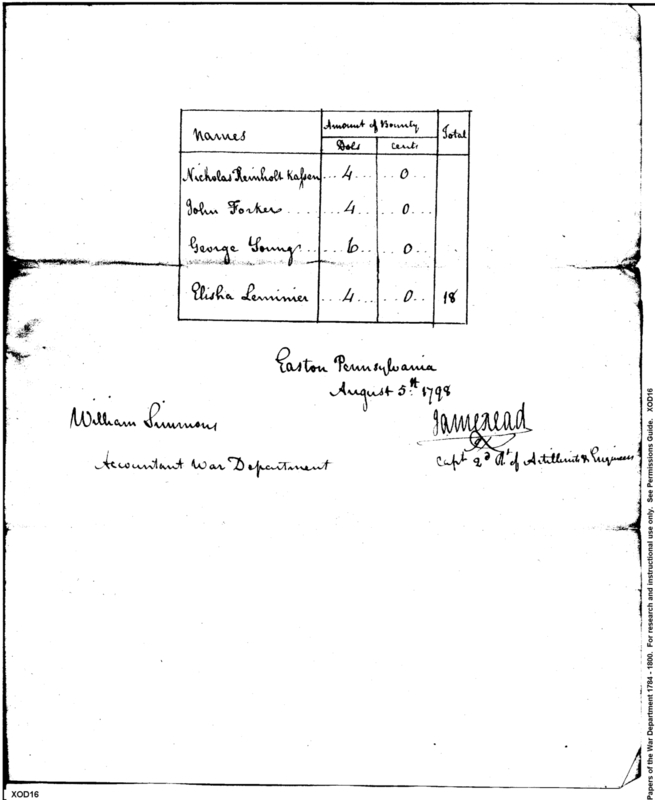 Names Amount of Bounty Total
Dols cents
Nicholas Reinholt Kassen ... 4 ... 0 ...
John Forker ... 4 ... 0 ...
George Young ... 6 ... 0 ...
Elisha Leminier ... 4 ... 0 ... 18
Easton Pennsylvania
August 5th 1798
William Simmons
James Read
Accountant War Department
Capt 2d Rt of Artillerists & Engineers
XOD16
Papers of the War Department 1784 - 1800. For research and instructional use only. See Permissions Guide. XOD16